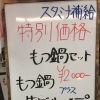 スタミナ補給
特別価格
もつ鍋セット
もつ鍋 ¥2000-
プラス